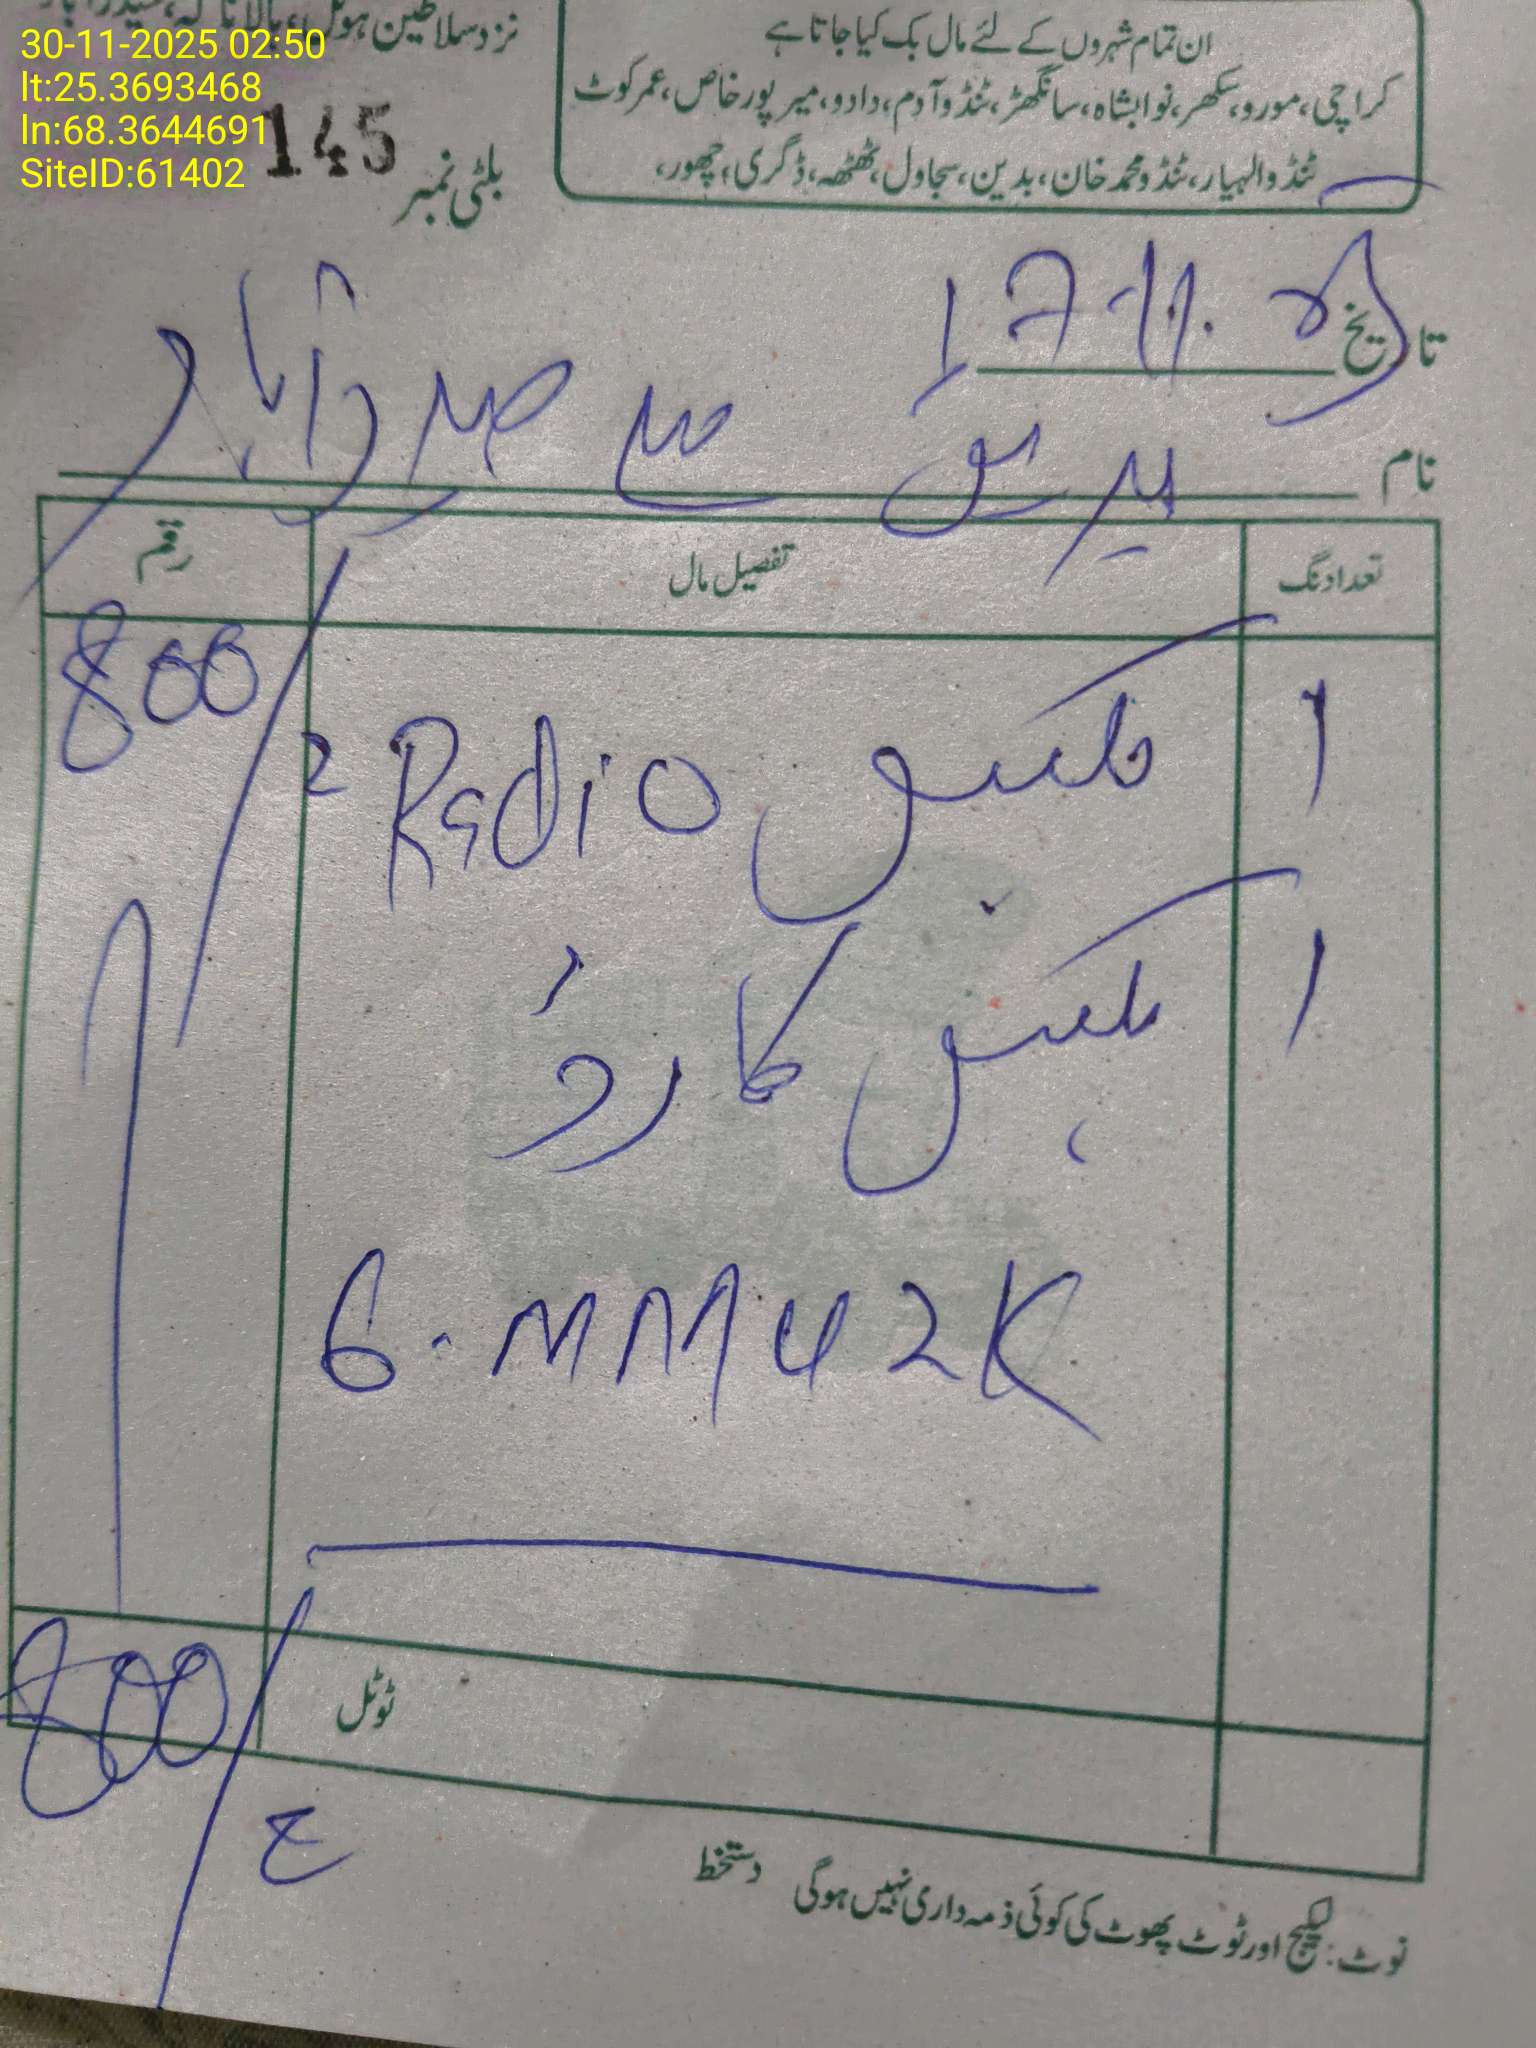 30-11-2025 02:50
lt:25.3693468
ln:68.3644691
SiteID:61402
نزد سلاطین ہوٹل، بالا ناکہ، حیدرآباد
145 بلٹی نمبر
ان تمام شہروں کے لئے مال بک کیا جاتا ہے
کراچی، مورو، سکھر، نوابشاہ، سانگھڑ، ٹنڈوآدم، دادو، میرپورخاص، عمرکوٹ
ٹنڈوالہیار، ٹنڈومحمد خان، بدین، سجاول، ٹھٹھہ، ڈگری، چھور،
تاریخ
نام سے حیدرآباد
تعداد نگ تفصیل مال رقم
1 بکس Radio 2 800
1 بکس کارڈ
6.MM42K
ٹوٹل 800
نوٹ: لیکیج اور ٹوٹ پھوٹ کی کوئی ذمہ داری نہیں ہوگی دستخط